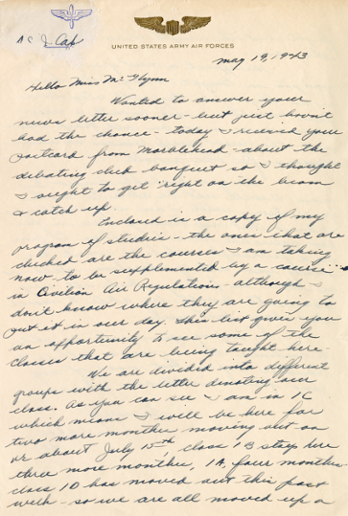 A/C J. Cap
UNITED STATES ARMY AIR FORCES
May 19, 1943
Hello Miss McGlynn
Wanted to answer your
news letter sooner - but just havn't
had the chance - today I received your
postcard from Marblehead - about the
debating club banquet so I thought
I ought to get "right on the beam
& catch up.
Enclosed is a copy of my
program of studies - the ones that are
checked are the courses I am taking
now - to be supplemented by a course
in Civilian Air Regulations - although I
don't know where they are going to
put it in our day. This list gives you
an opportunity to see some of the
classes that are being taught here.
We are divided into different
groups with the letter denoting our
class. As you can see I am in 1C
which means I will be here for
two more months moving out on
or about July 15th, class 1B stay here
three more months, 1A, four months
class 1D has moved out this past
with - so we are all moved up a